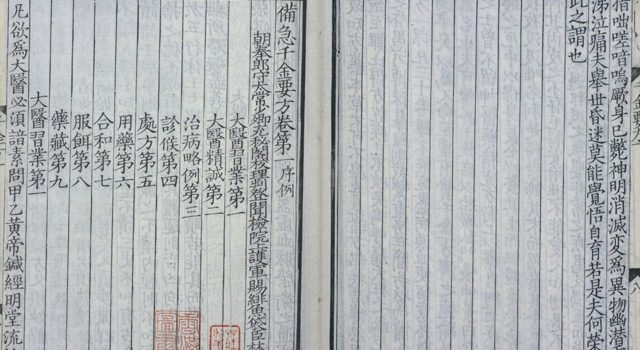 指咄嗟喑嗚厥身已斃神明消滅變爲異物幽潛
涕泣痛夫舉世昏迷莫能覺悟自育若是夫何榮
此之謂也
備急千金要方卷第一 序例
朝奉郎守太常少卿充秘閣校理判登聞檢院上護軍賜緋魚袋臣林
大醫習業第一
大醫精誠第二
治病略例第三
診候第四
處方第五
用藥第六
合和第七
服餌第八
藥藏第九
大醫習業第一
凡欲爲大醫必須諳素問甲乙黃帝鍼經明堂流